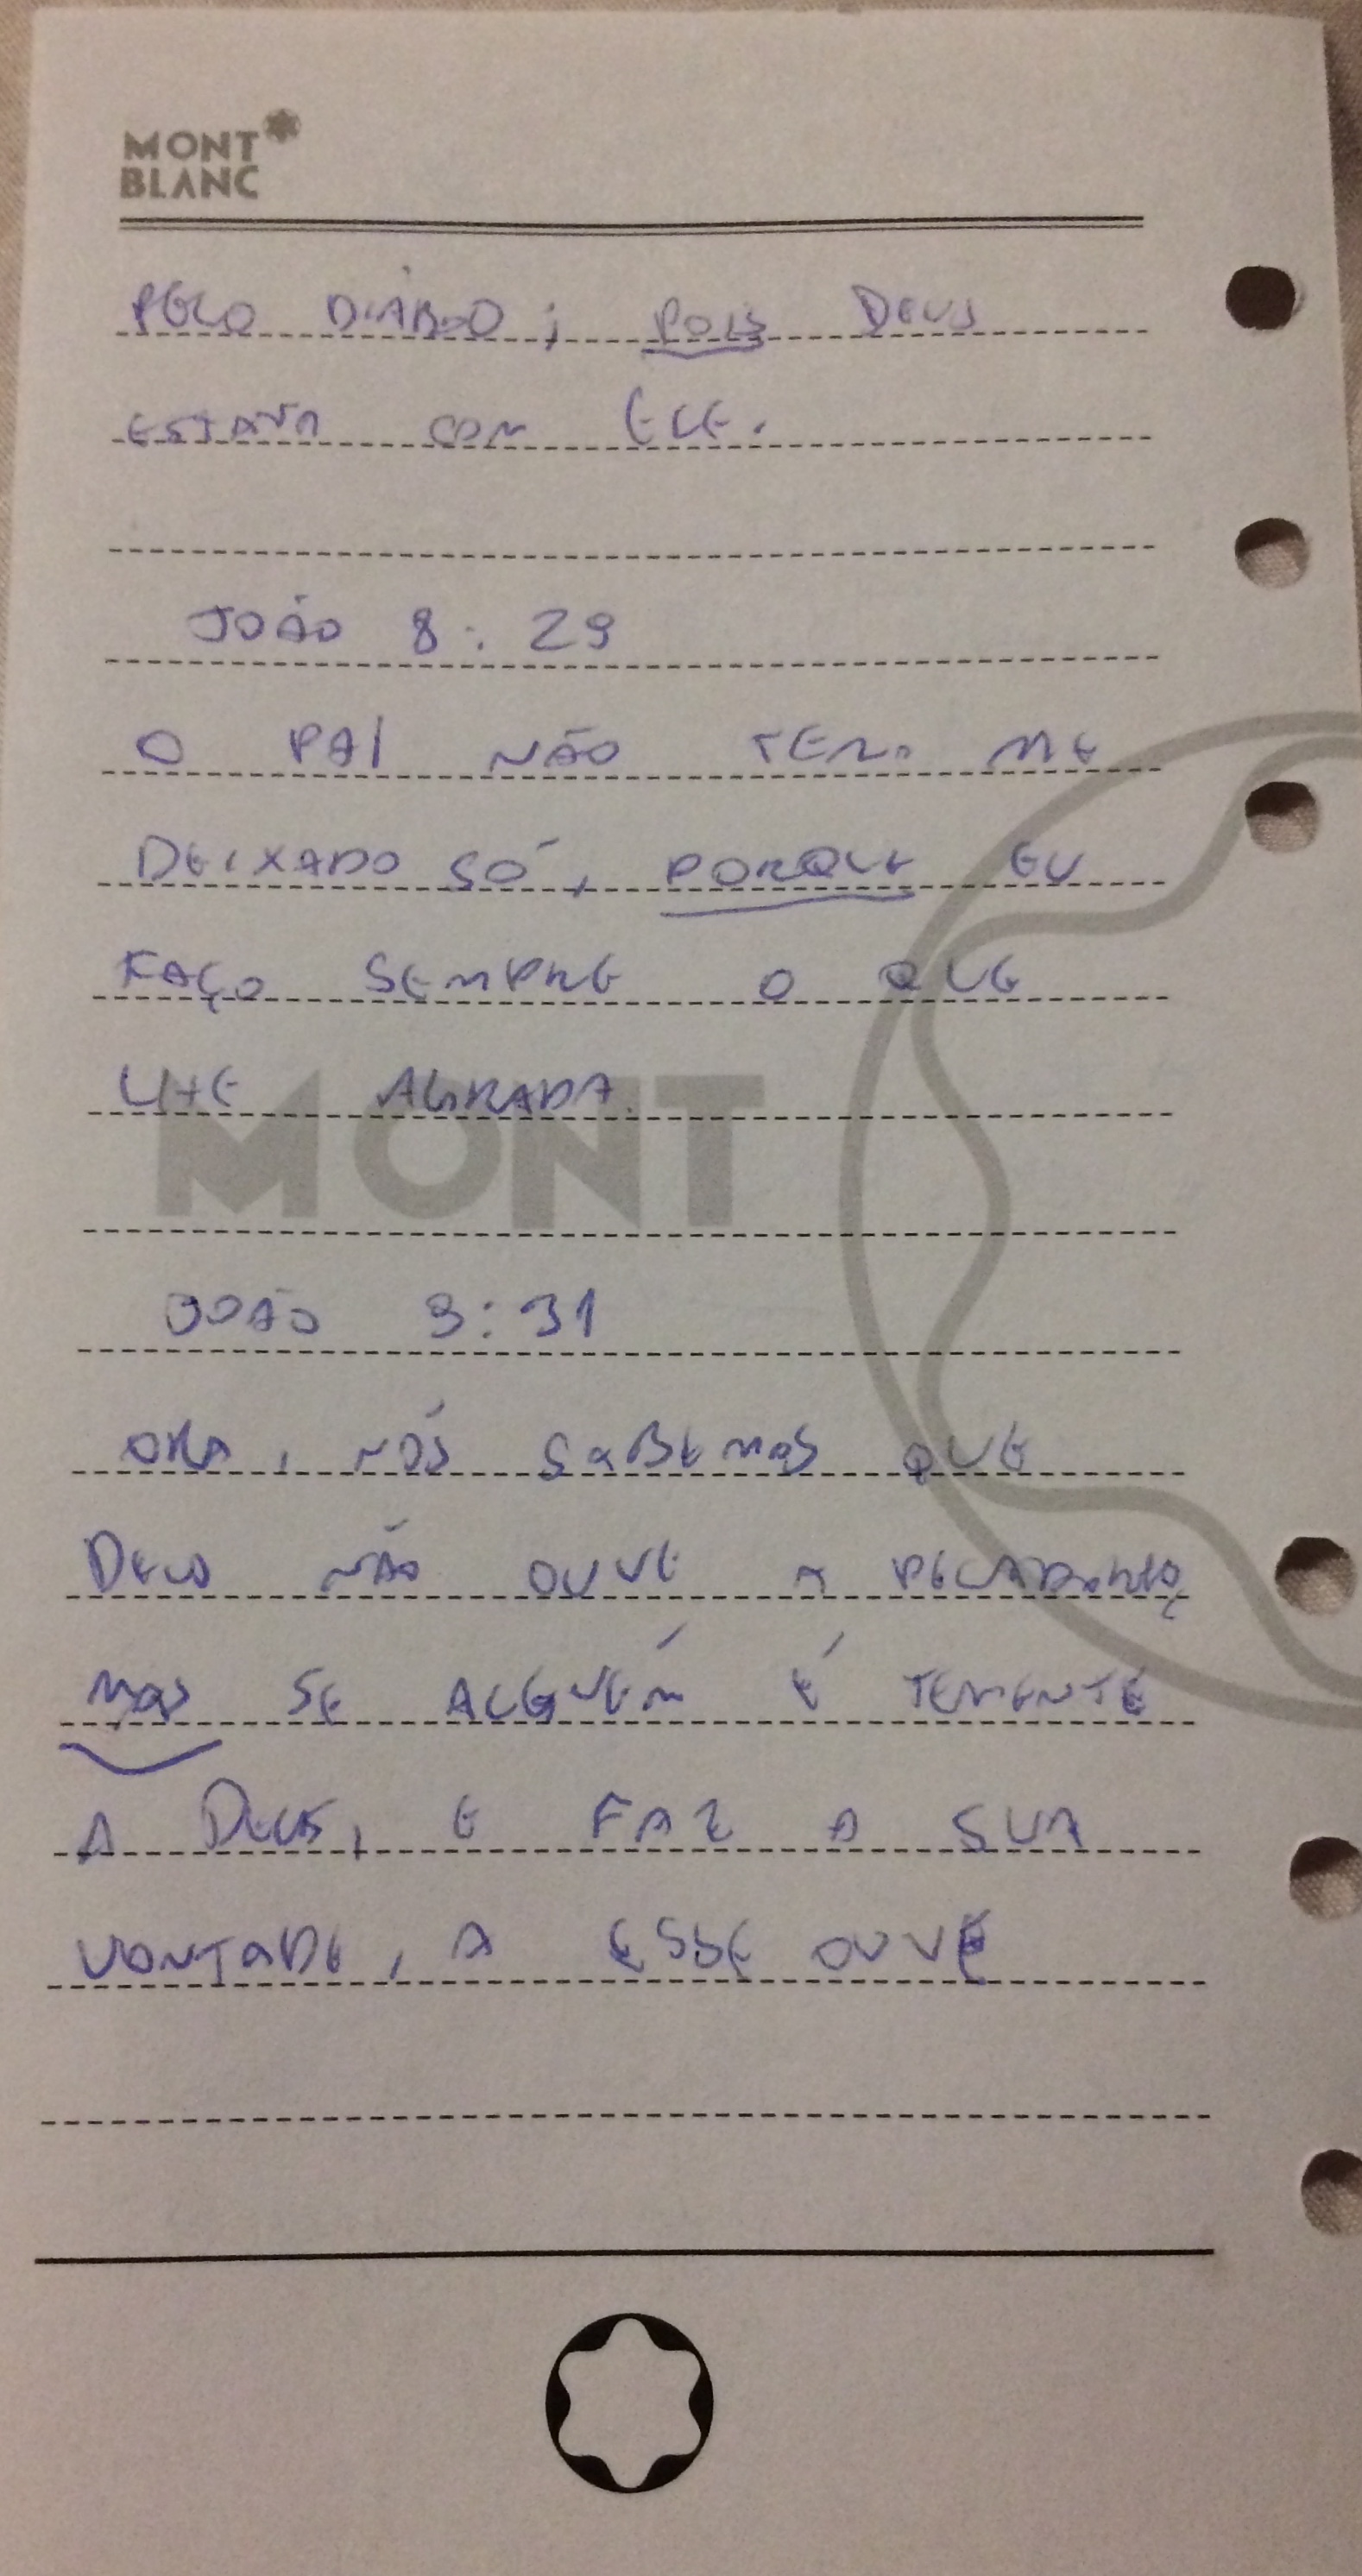 MONT
BLANC
PELO DIABO; POIS DEUS
ESTAVA COM ELE.
JOÃO 8:29
O PAI NÃO TEM ME
DEIXADO SÓ, PORQUE EU
FAÇO SEMPRE O QUE
LHE AGRADA.
MONT
JOÃO 9:31
ORA, NÓS SABEMOS QUE
DEUS NÃO OUVE A PECADORES,
MAS SE ALGUÉM É TEMENTE
A DEUS, E FAZ A SUA
VONTADE, A ESSE OUVE